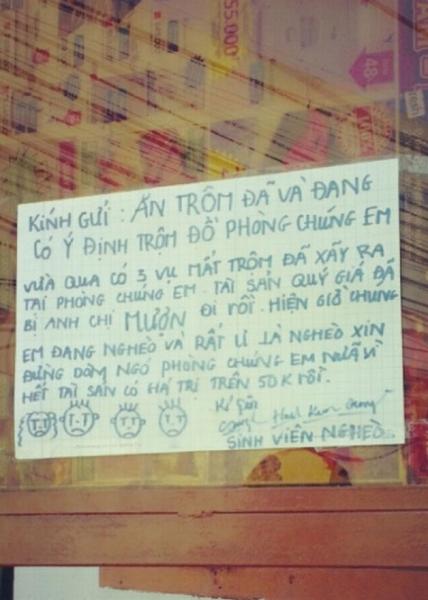 55.000
48
KÍNH GỬI : ĂN TRỘM ĐÃ VÀ ĐANG
CÓ Ý ĐỊNH TRỘM ĐỒ PHÒNG CHÚNG EM
VỪA QUA CÓ 3 VỤ MẤT TRỘM ĐÃ XẢY RA
TẠI PHÒNG CHÚNG EM. TÀI SẢN QUÝ GIÁ ĐÃ
BỊ ANH CHỊ MƯỢN ĐI RỒI. HIỆN GIỜ CHÚNG
EM ĐANG NGHÈO VÀ RẤT Ư LÀ NGHÈO XIN
ĐỪNG DÒM NGÓ PHÒNG CHÚNG EM NỮA VÌ
HẾT TÀI SẢN CÓ HÁ TRỊ TRÊN 50K RỒI.
Kí tên
SINH VIÊN NGHÈO